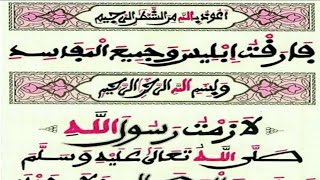 اعوذ بالله من الشيطن الرجيم
فارقت ابليس وجميع المفاسد
وبسم الله الرحمن الرحيم
لازمت رسول الله
صلى الله تعالى عليه وسلم